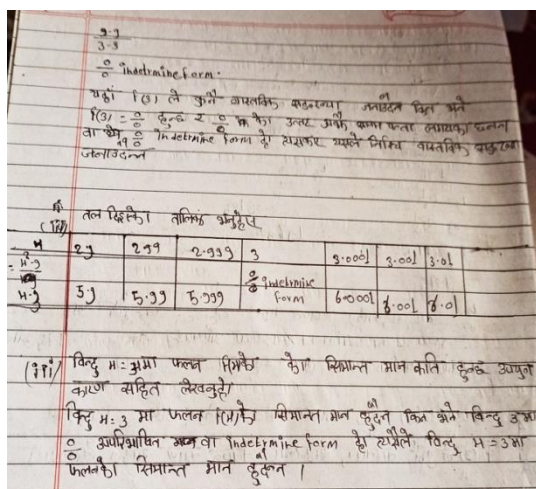 9-9
3-3
0/0 indetrmine form.
यहाँ f(3) ले कुनै वास्तविक सङ्ख्या जनाउदैन किन भने
f(3) = 0/0 हुन्छ र 0/0 को उत्तर
वा 0/0 indetermine form हो त्यसकार यसले निश्चित वास्तविक सङ्ख्या
जनाउदैन
(ii) तल दिइएको तालिका भर्नुहोस्
x 2.9 2.99 2.999 3 3.0001 3.001 3.01
= x²-9 / x-9 5.9 5.99 5.999 0/0 indetrmine form 6.0001 6.001 6.01
(iii) विन्दु x = 3मा फलन को सिमान्त मान कति हुन्छ उपयुक्त
कारण सहित लेख्नुहोस्
विन्दु x = 3 मा फलन f(x)को सिमान्त मान हुदैन किन भने विन्दु 3मा
0/0 अपरिभाषित वा indetrmine form हो त्यसैले विन्दु x = 3मा
फलनको सिमान्त मान हुदैन ।